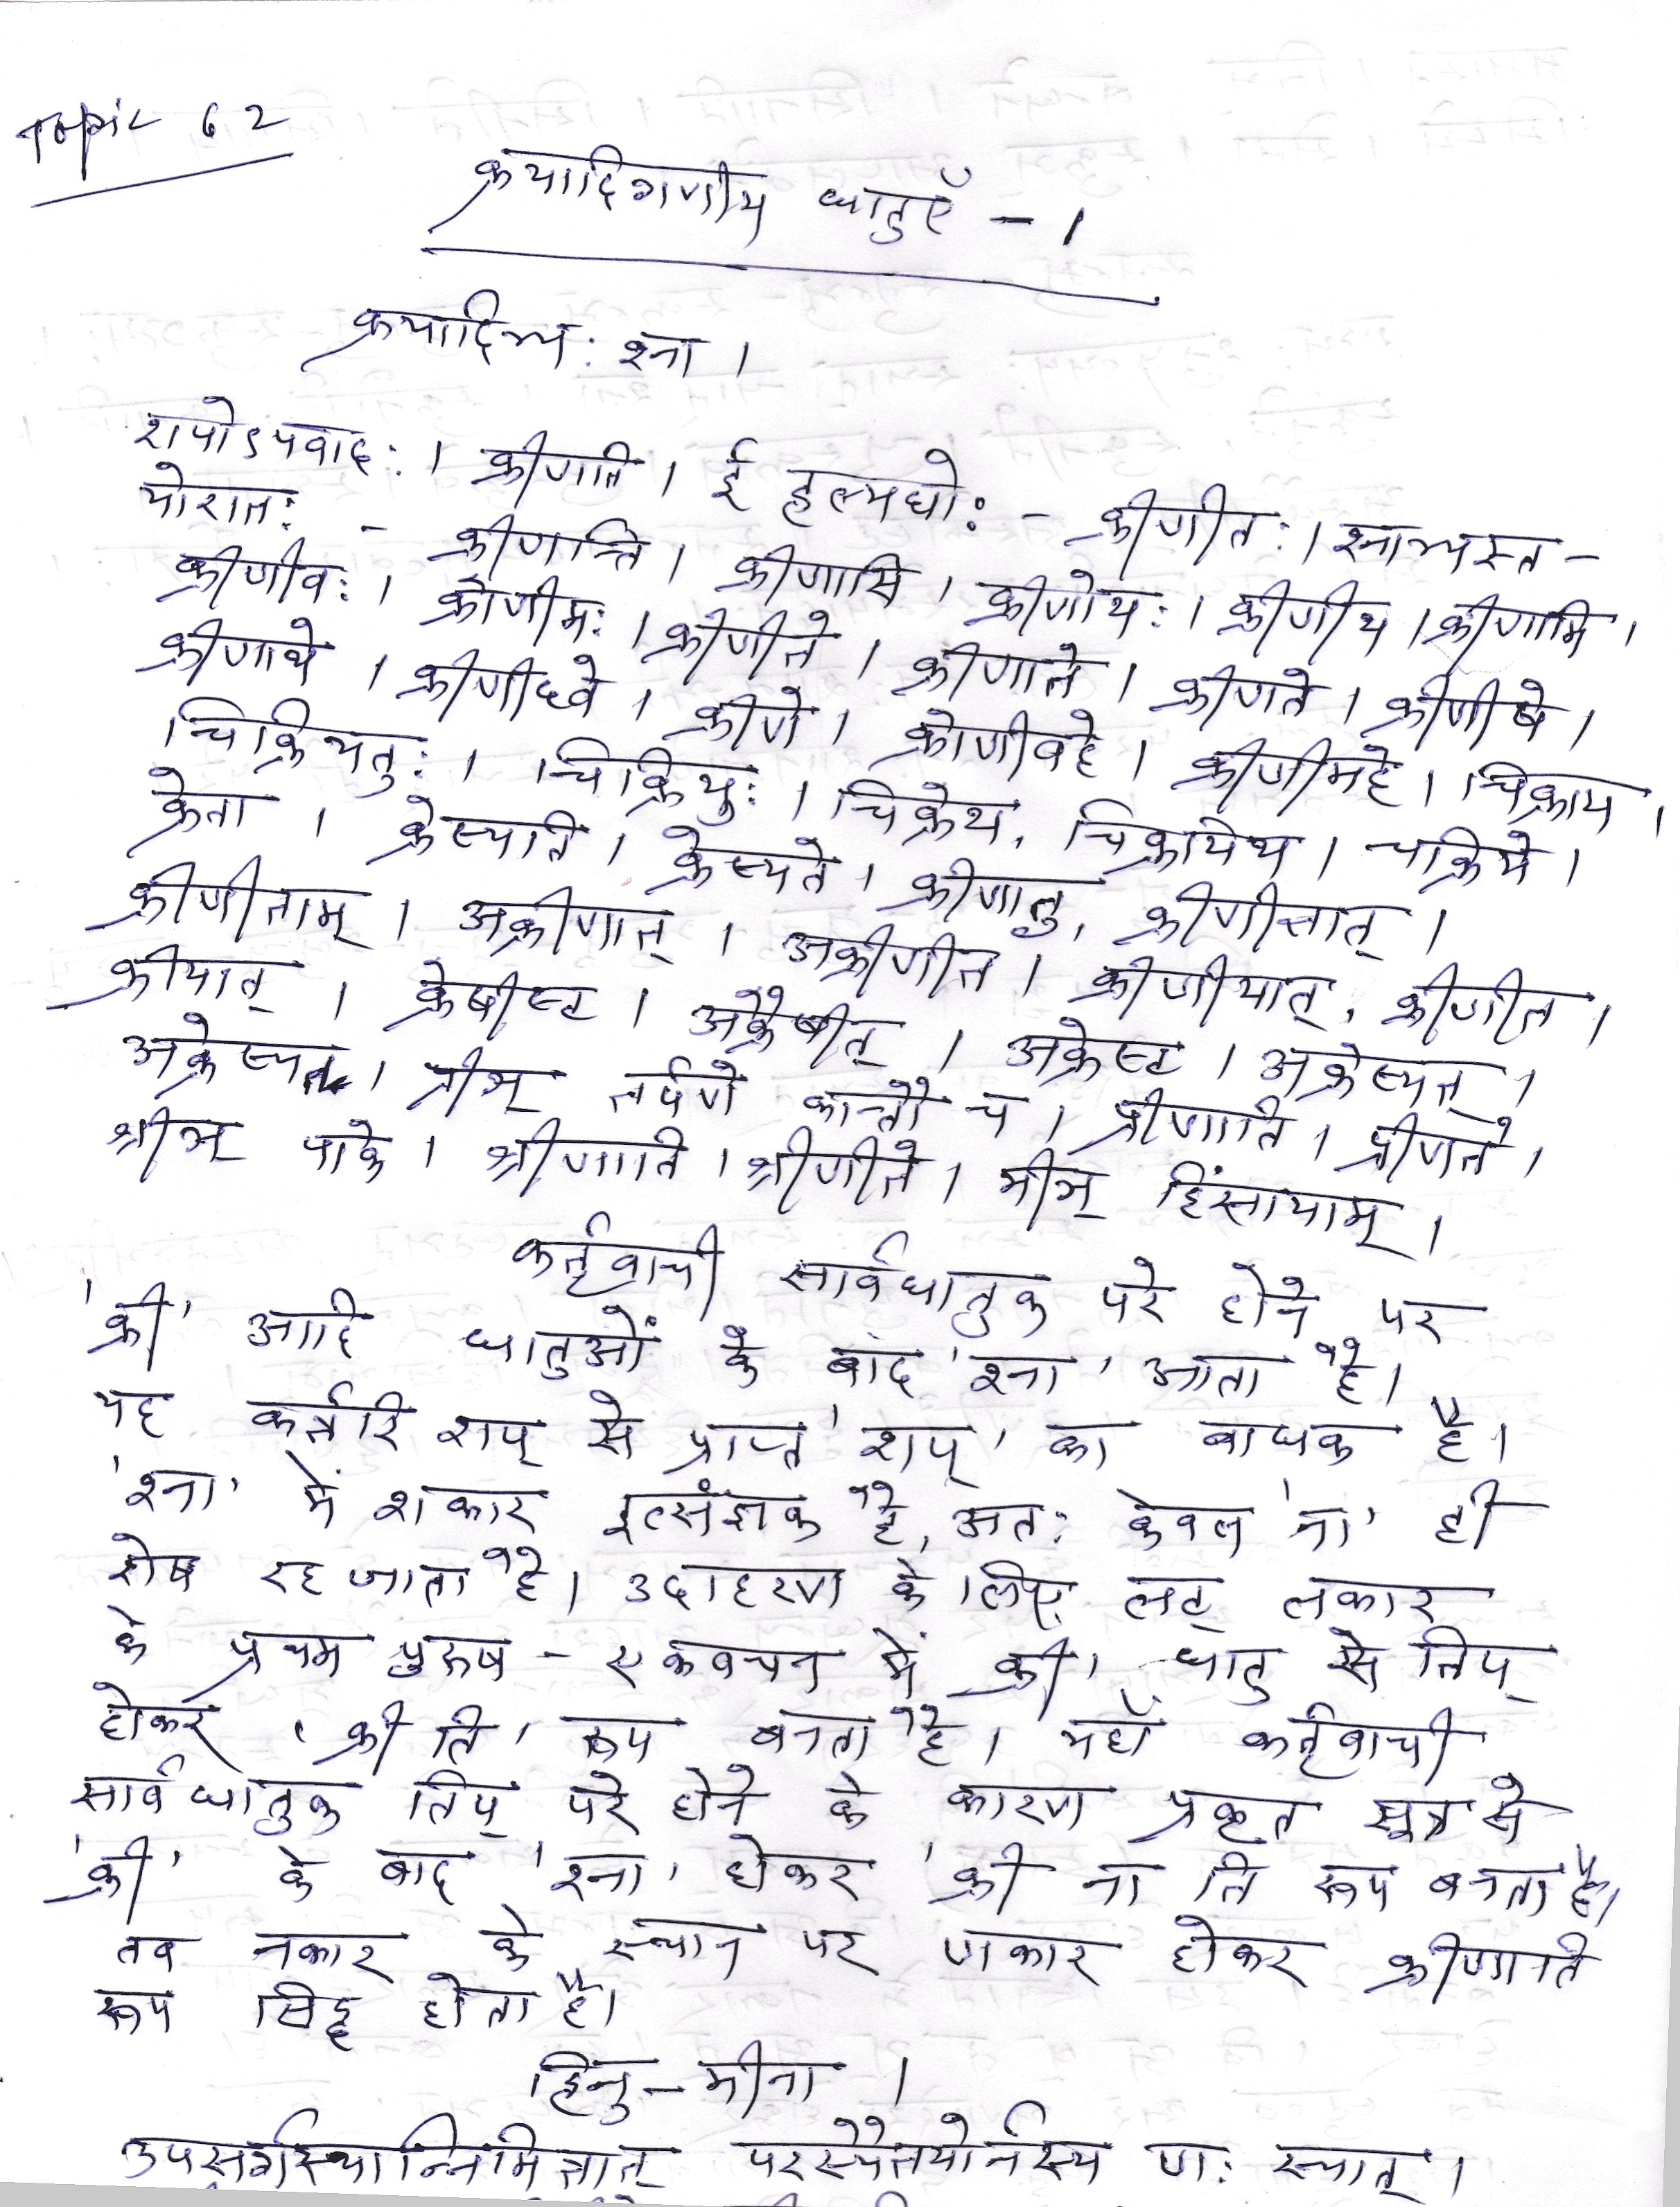 Topic 62
क्रयादिगणीय धातुएँ - 1
क्रयादिभ्य: श्ना ।
शपोऽपवाद: । क्रीणाति । ई हल्यघो: - क्रीणीत: । श्नाभ्यस्त-
योरात: - क्रीणन्ति । क्रीणासि । क्रीणीथ: । क्रीणीथ । क्रीणामि ।
क्रीणीव: । क्रीणीम: । क्रीणीते । क्रीणाते । क्रीणते । क्रीणीषे ।
क्रीणाथे । क्रीणीध्वे । क्रीणे । क्रीणीवहे । क्रीणीमहे । चिक्राय ।
चिक्रियतु: । चिक्रियु: । चिक्रेथ, चिक्रयिथ । चक्रिये ।
क्रेता । क्रेस्यति । क्रेस्यते । क्रीणातु, क्रीणीतात् ।
क्रीणीताम् । अक्रीणात् । अक्रीणीत । क्रीणीयात्, क्रीणीत ।
क्रीयात् । क्रेषीष्ट । अक्रैषीत् । अक्रेष्ट । अक्रेस्यत् ।
अक्रेस्यत । प्रीञ् तर्पणे कान्तौ च । प्रीणाति । प्रीणते ।
श्रीञ् पाके । श्रीणाति । श्रीणीते । मीञ् हिंसायाम् ।
कर्तृवाची सार्वधातुक परे होने पर
'क्री' आदि धातुओं के बाद 'श्ना' आता है।
यह कर्तरि शप् से प्राप्त 'शप्' का बाधक है।
'श्ना' में शकार इत्संज्ञक है, अत: केवल 'ना' ही
शेष रह जाता है। उदाहरण के लिए लट् लकार
के प्रथम पुरुष - एकवचन में क्री' धातु से तिप्
होकर 'क्री ति' रूप बनता है। यहाँ कर्तृवाची
सार्वधातुक तिप् परे होने के कारण प्रकृत सूत्र से
'क्री' के बाद 'श्ना' होकर 'क्री ना ति रूप बनता है।
तब नकार के स्थान पर णकार होकर क्रीणाति
रूप सिद्ध होता है।
हिनु-मीना ।
उपसर्गस्थान्निमित्तात् परस्यैतयोर्नस्य ण: स्यात् ।